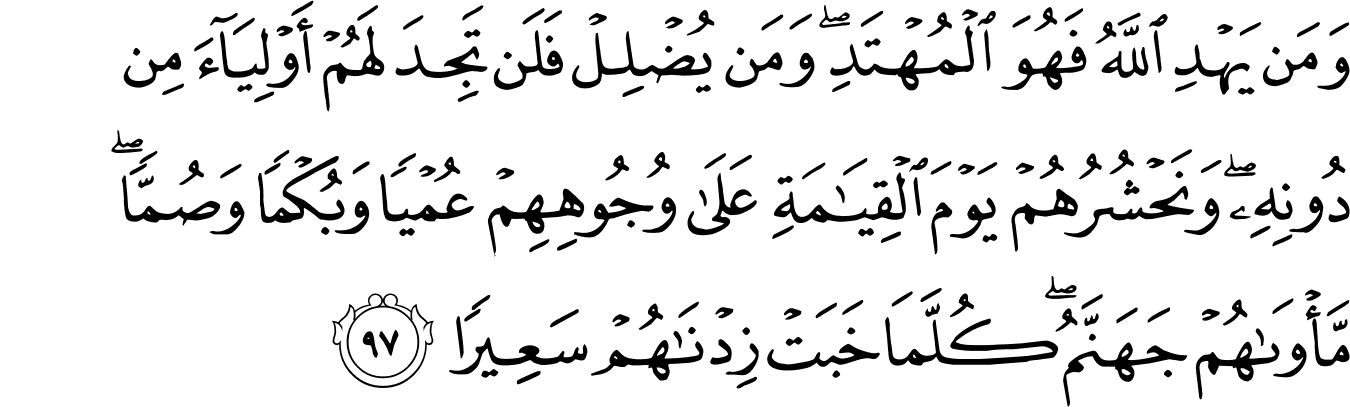 وَمَن يَهْدِ ٱللَّهُ فَهُوَ ٱلْمُهْتَدِ ۖ وَمَن يُضْلِلْ فَلَن تَجِدَ لَهُمْ أَوْلِيَآءَ مِن
دُونِهِۦ ۖ وَنَحْشُرُهُمْ يَوْمَ ٱلْقِيَـٰمَةِ عَلَىٰ وُجُوهِهِمْ عُمْيًا وَبُكْمًا وَصُمًّا ۖ
مَّأْوَىٰهُمْ جَهَنَّمُ ۖ كُلَّمَا خَبَتْ زِدْنَـٰهُمْ سَعِيرًا ٩٧